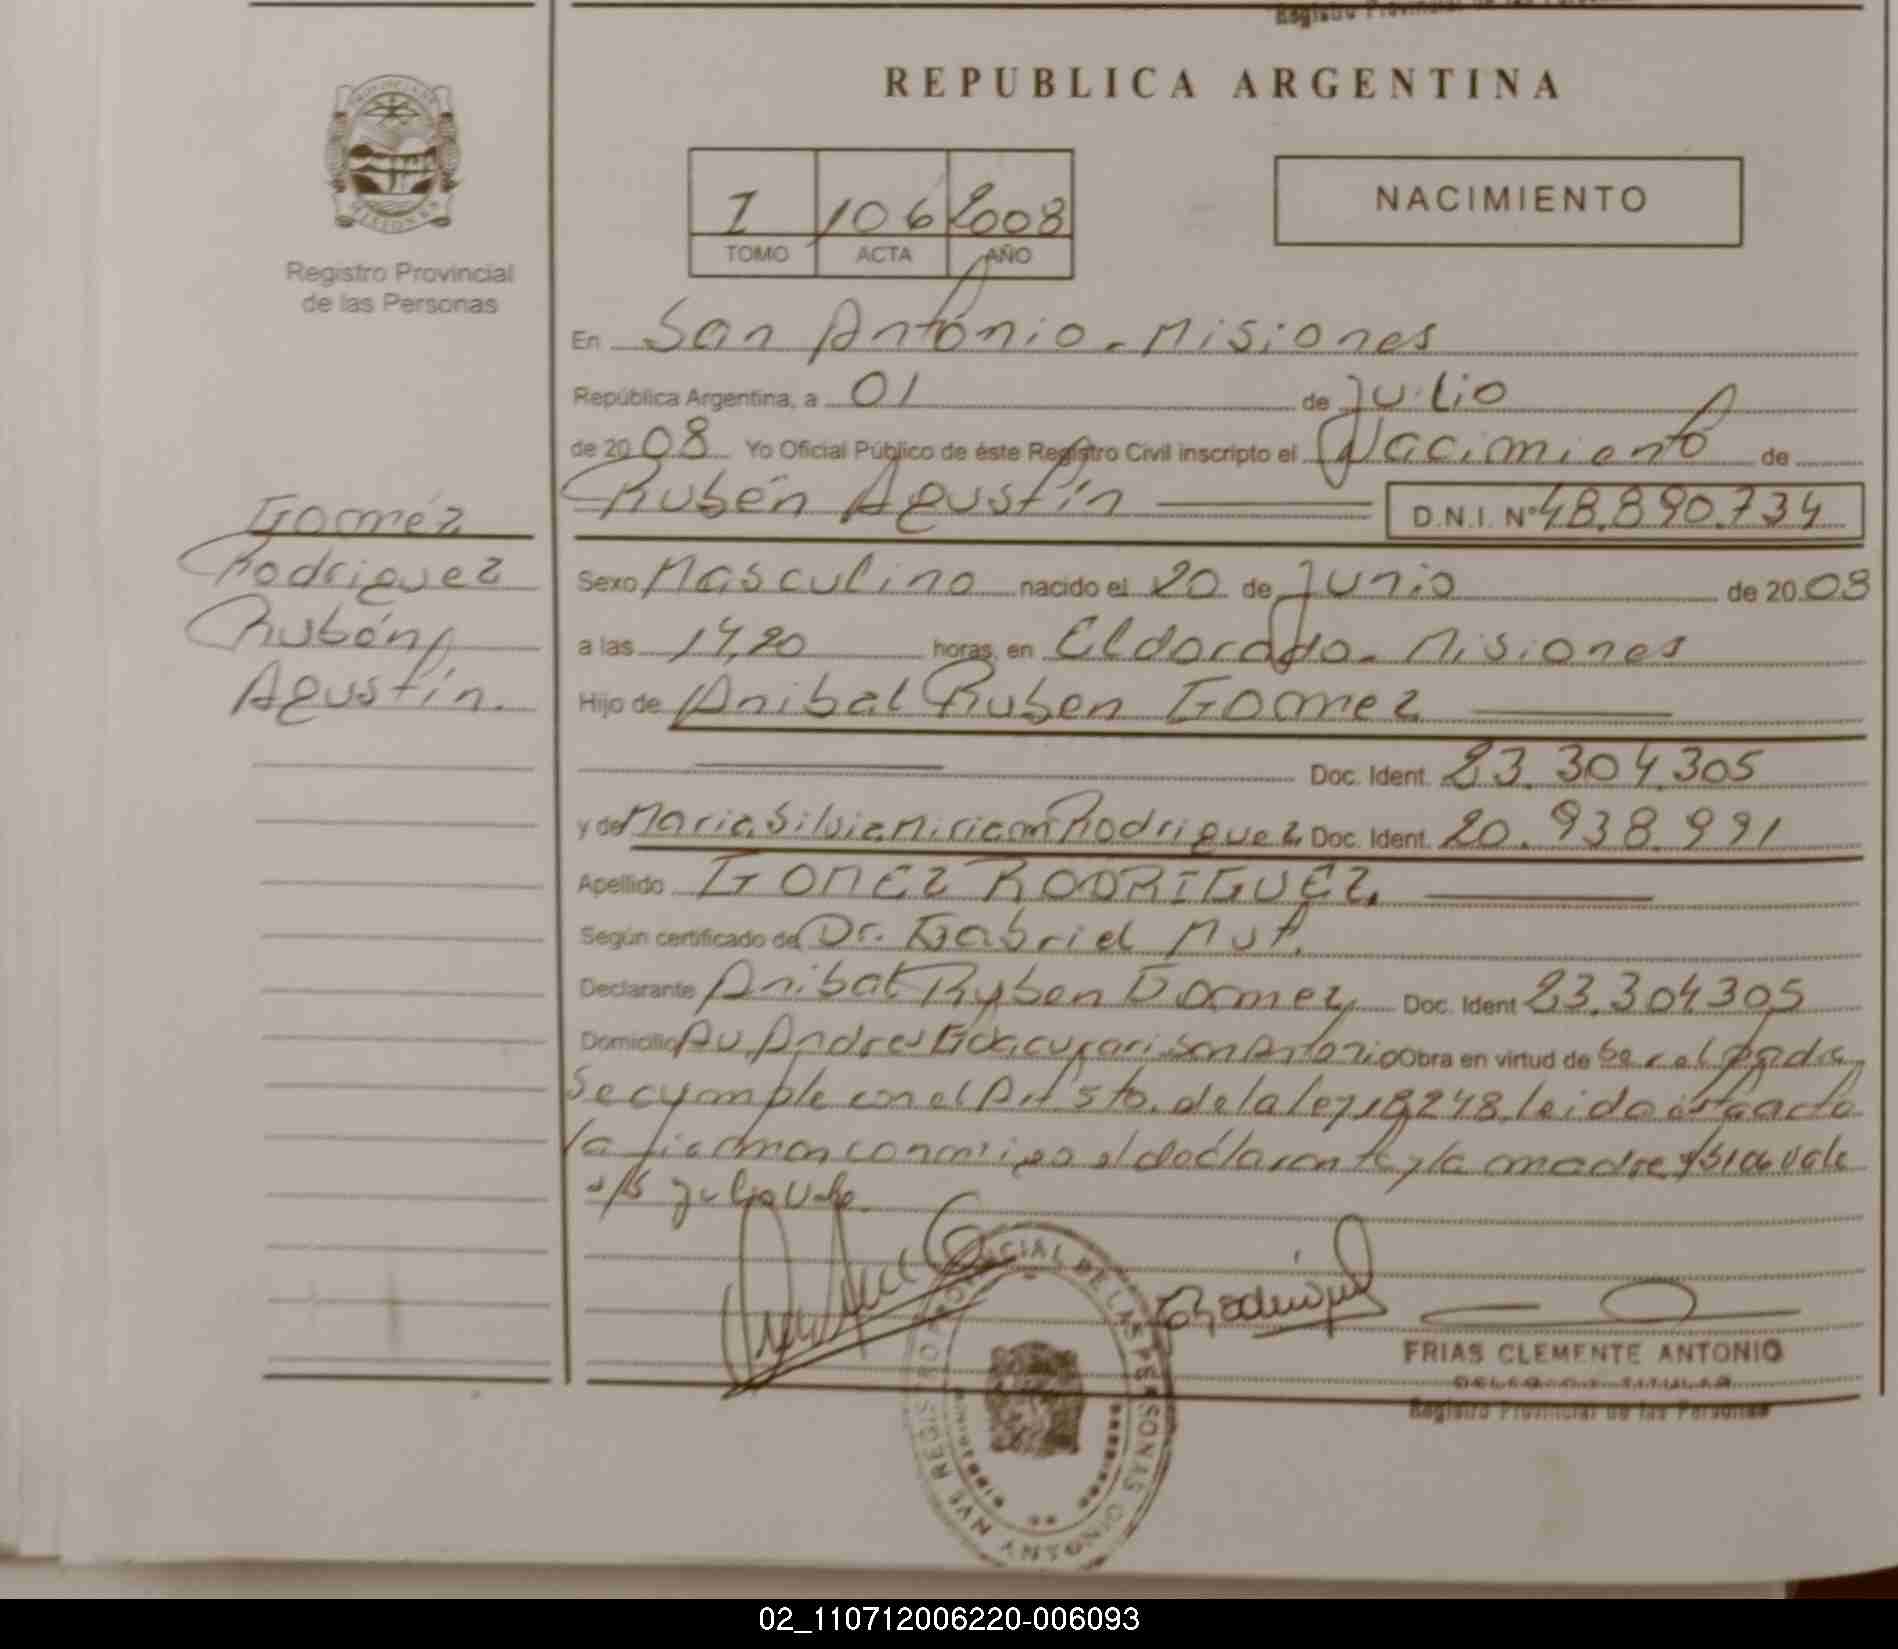 Registro Provincial de las Personas
REPUBLICA ARGENTINA
PROVINCIA DE
MISIONES
Registro Provincial
de las Personas
I 106 2008
TOMO ACTA AÑO
NACIMIENTO
En San Antonio - Misiones
República Argentina, a 01 de Julio
de 2008 Yo Oficial Público de éste Registro Civil inscripto el Nacimiento de
Rubén Agustín D.N.I. Nº 48.890.734
Gomez
Rodriguez
Rubén
Agustín.
Sexo Masculino nacido el 20 de Junio de 2008
a las 14,20 horas, en Eldorado - Misiones
Hijo de Anibal Ruben Gomez
Doc. Ident. 23.304.305
y de Maria Silvia Miriam Rodriguez Doc. Ident. 20.938.991
Apellido GOMEZ RODRIGUEZ.
Según certificado de Dr. Gabriel
Declarante Anibal Ruben Gomez Doc. Ident 23.304305
Domicilio Av. Andres Guacurari San Antonio Obra en virtud de Ser el padre
Se cumple con el Art 5to. de la ley 18248, leida esta acta
la firman conmigo el declarante y la madre vale
s/b Julio Vale.
Rodriguez
REGISTRO PROVINCIAL DE LAS PERSONAS
FRIAS CLEMENTE ANTONIO
DELEGADO TITULAR
Registro Provincial de las Personas
02_110712006220-006093